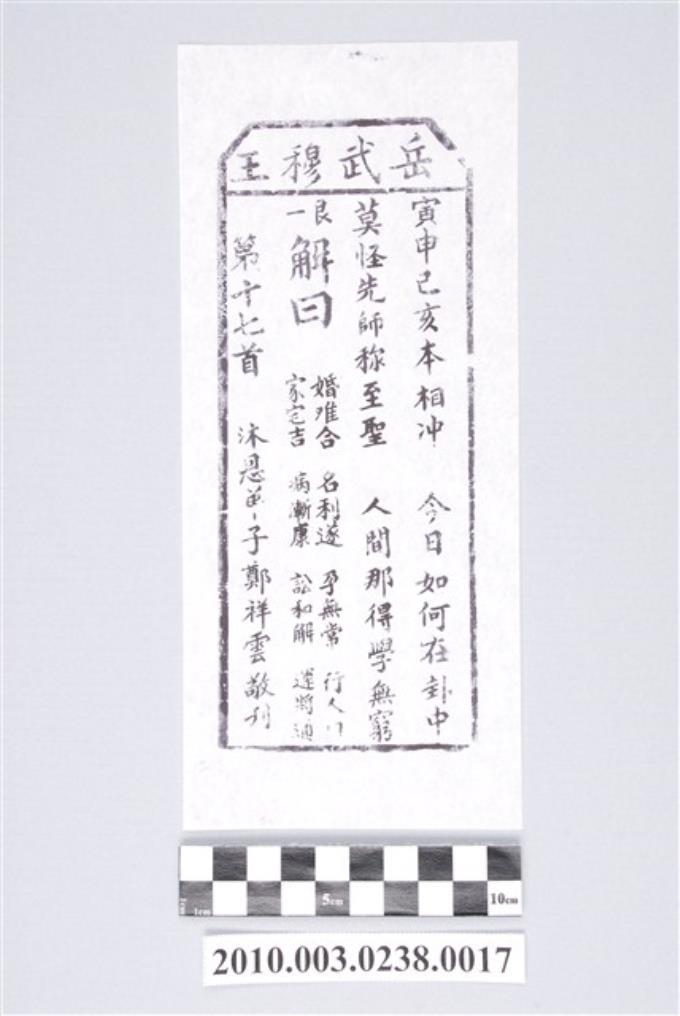 岳武穆王
寅申己亥本相冲 今日如何在卦中
莫怪先師称至聖 人間那得學無窮
艮一
解曰
婚难合 名利遂 孕無常 行人
家宅吉 病漸康 訟和解 運將通
第十七首 沐恩弟子鄭祥雲敬刋
1cm 5cm 10cm
2010.003.0238.0017